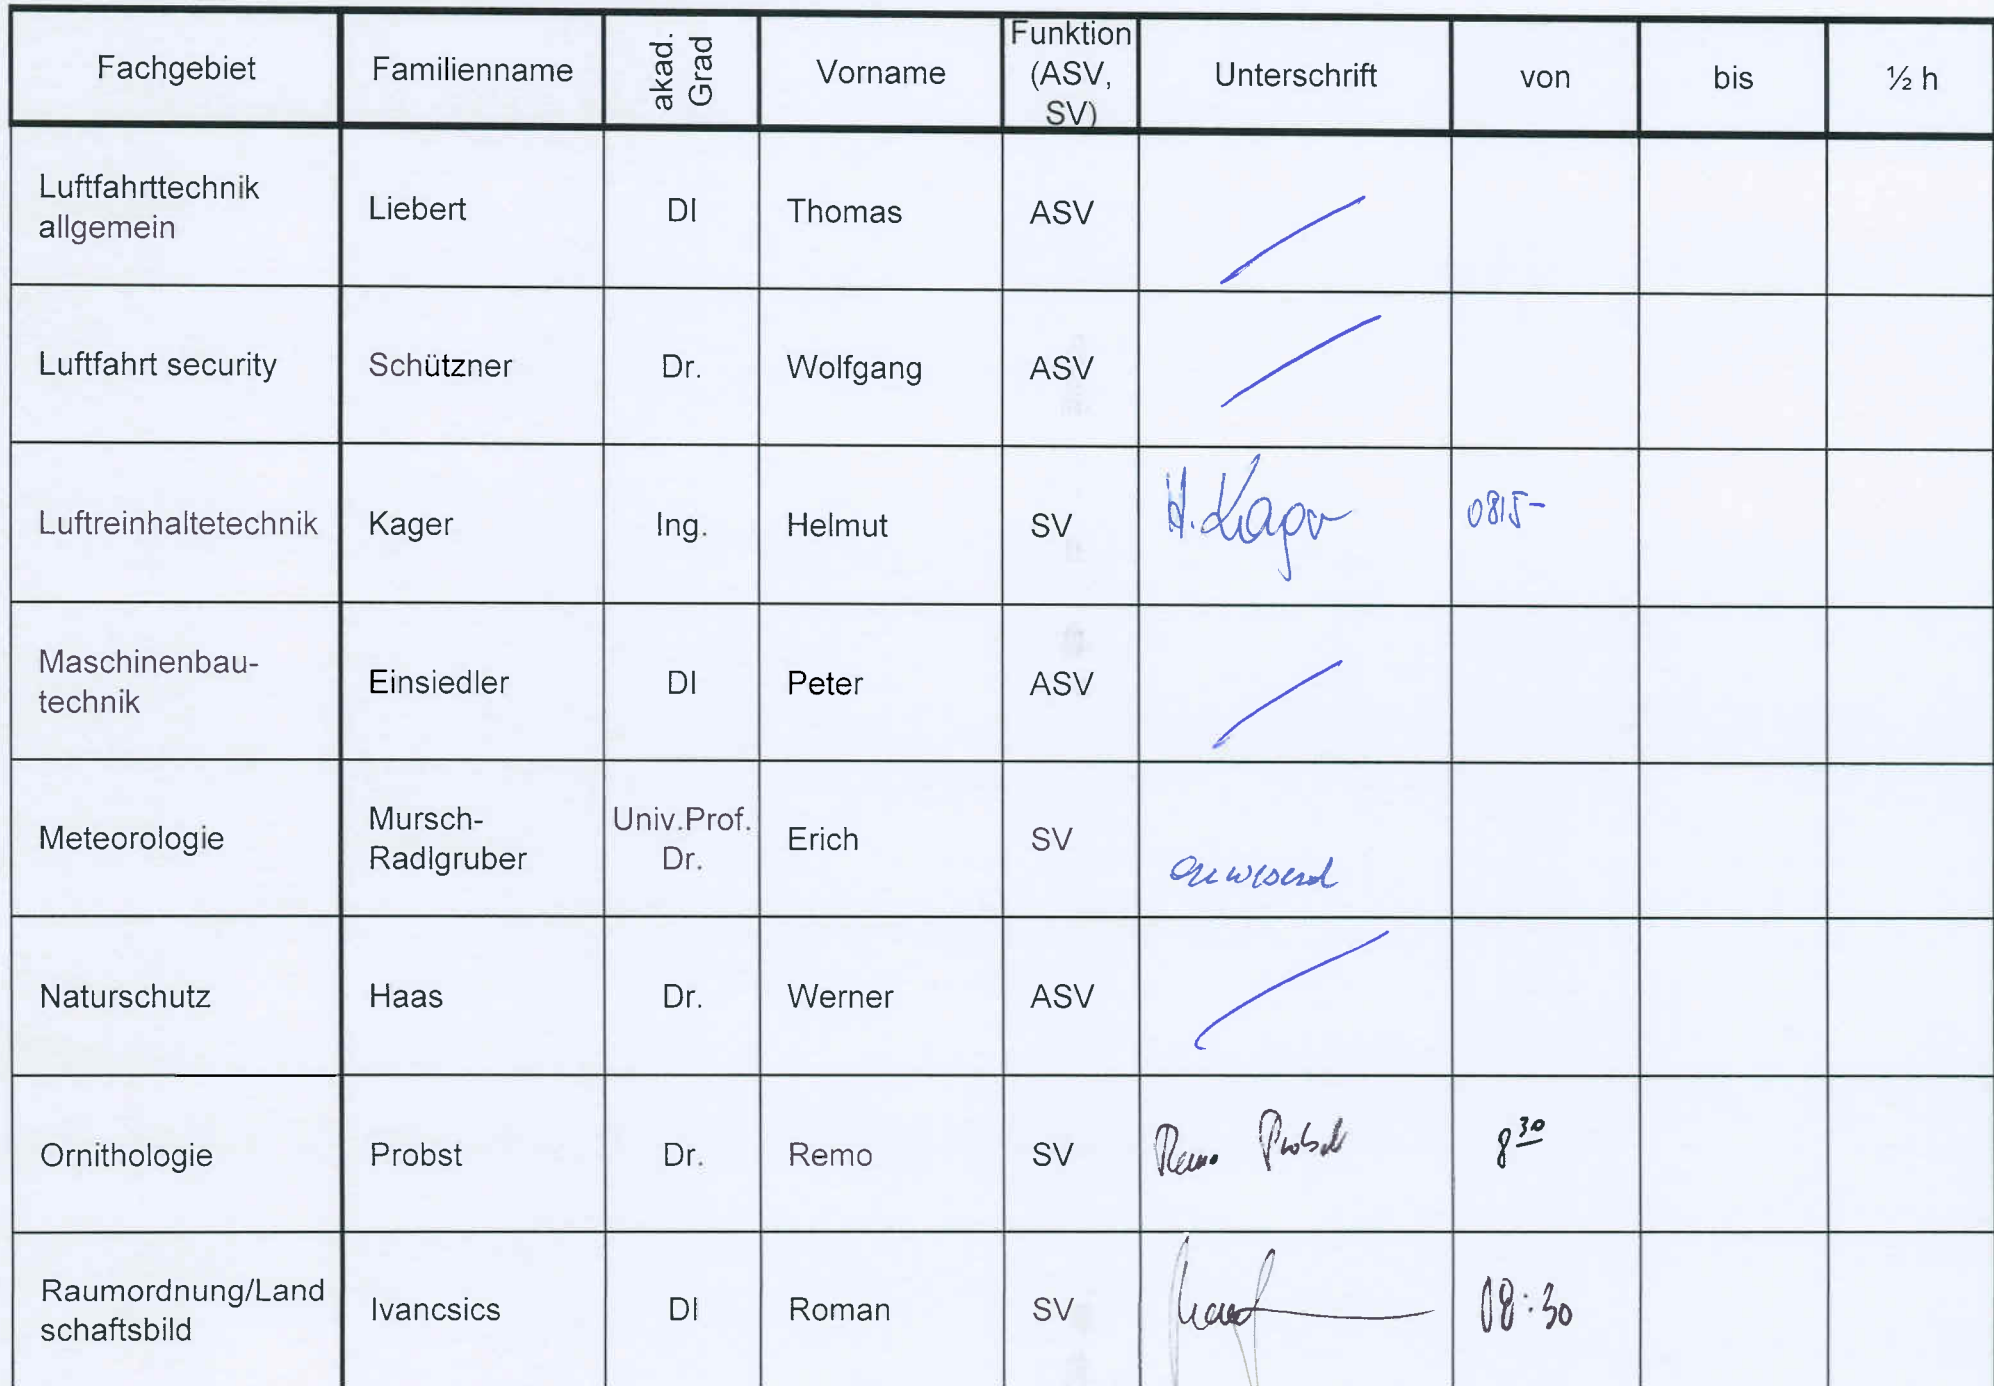 Fachgebiet Familienname akad. Grad Vorname Funktion (ASV, SV) Unterschrift von bis ½ h
Luftfahrttechnik allgemein Liebert DI Thomas ASV
Luftfahrt security Schützner Dr. Wolfgang ASV
Luftreinhaltetechnik Kager Ing. Helmut SV H. Kager 0815-
Maschinenbau-technik Einsiedler DI Peter ASV
Meteorologie Mursch-Radlgruber Univ.Prof. Dr. Erich SV anwesend
Naturschutz Haas Dr. Werner ASV
Ornithologie Probst Dr. Remo SV Remo Probst 8 30
Raumordnung/Land schaftsbild Ivancsics DI Roman SV 08:30